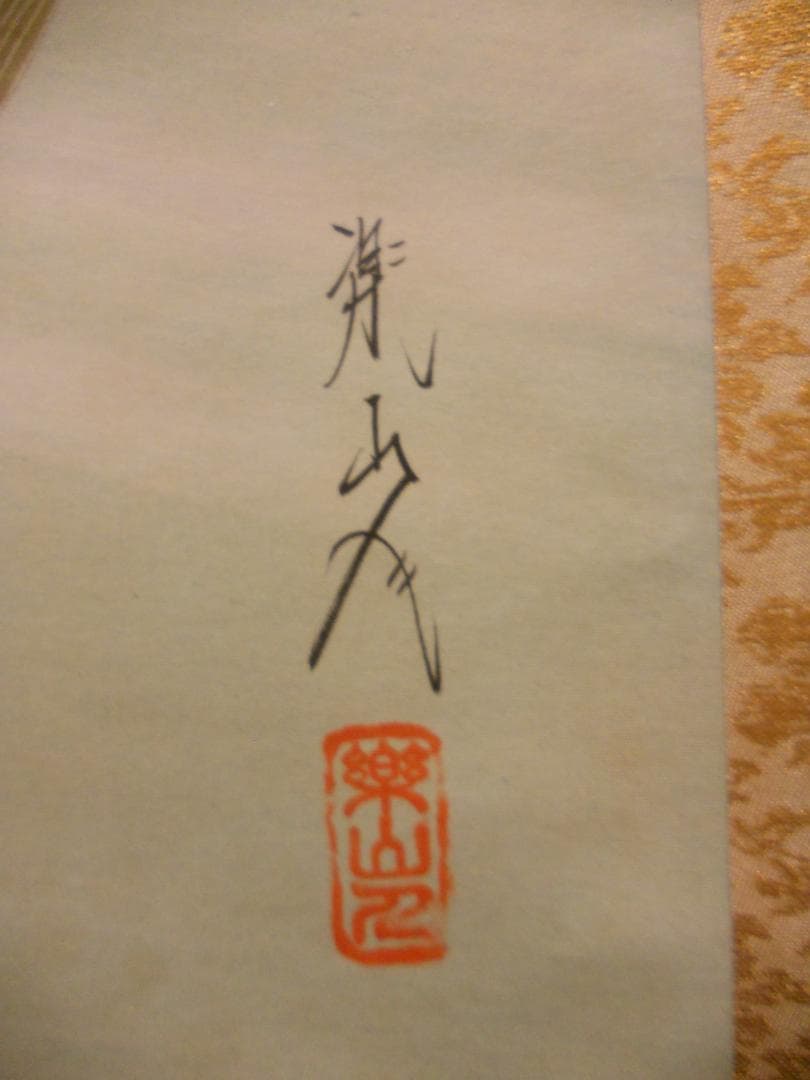 楽山人
樂山人